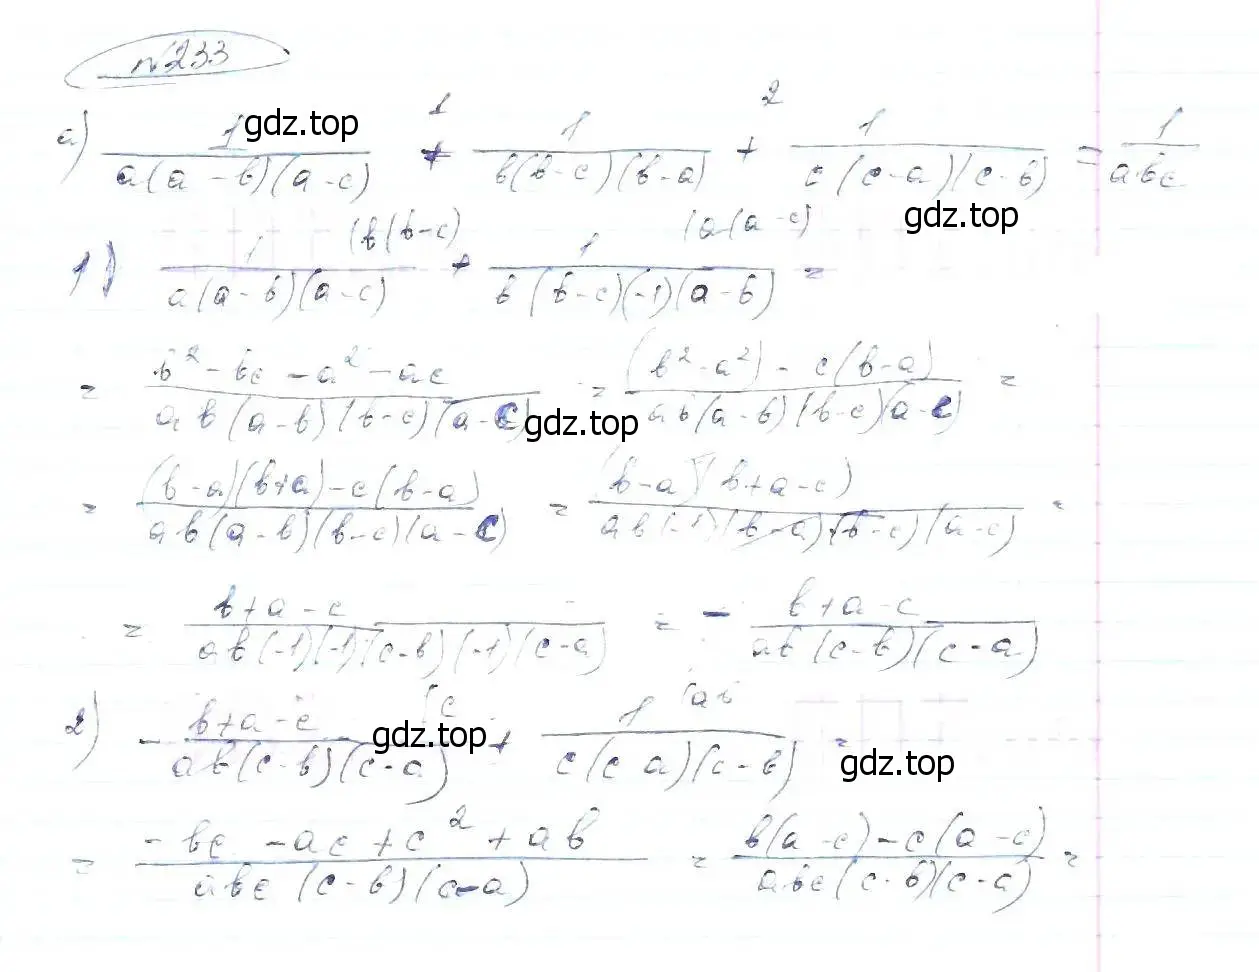 №233
а) 1/(a(a-b)(a-c)) + 1/(b(b-c)(b-a)) + 1/(c(c-a)(c-b)) = 1/(abc)
1 2
gdz.top
gdz.top
1) 1/(a(a-b)(a-c)) (b(b-c) + 1/(b(b-c)(-1)(a-b)) (a(a-c) =
= (b²-bc-a²-ac)/(ab(a-b)(b-c)(a-c)) = ((b²-a²)-c(b-a))/(ab(a-b)(b-c)(a-c)) =
gdz.top
= ((b-a)(b+a)-c(b-a))/(ab(a-b)(b-c)(a-c)) = ((b-a)(b+a-c))/(ab(-1)(b-a)(b-c)(a-c)) =
= (b+a-c)/(ab(-1)(-1)(c-b)(-1)(c-a)) = - (b+a-c)/(ab(c-b)(c-a))
2) - (b+a-c)/(ab(c-b)(c-a)) (c + 1/(c(c a)(c-b)) (ab =
gdz.top
gdz.top
= (-bc-ac+c²+ab)/(abc(c-b)(c-a)) = (b(a-c)-c(a-c))/(abc(c-b)(c-a)) =